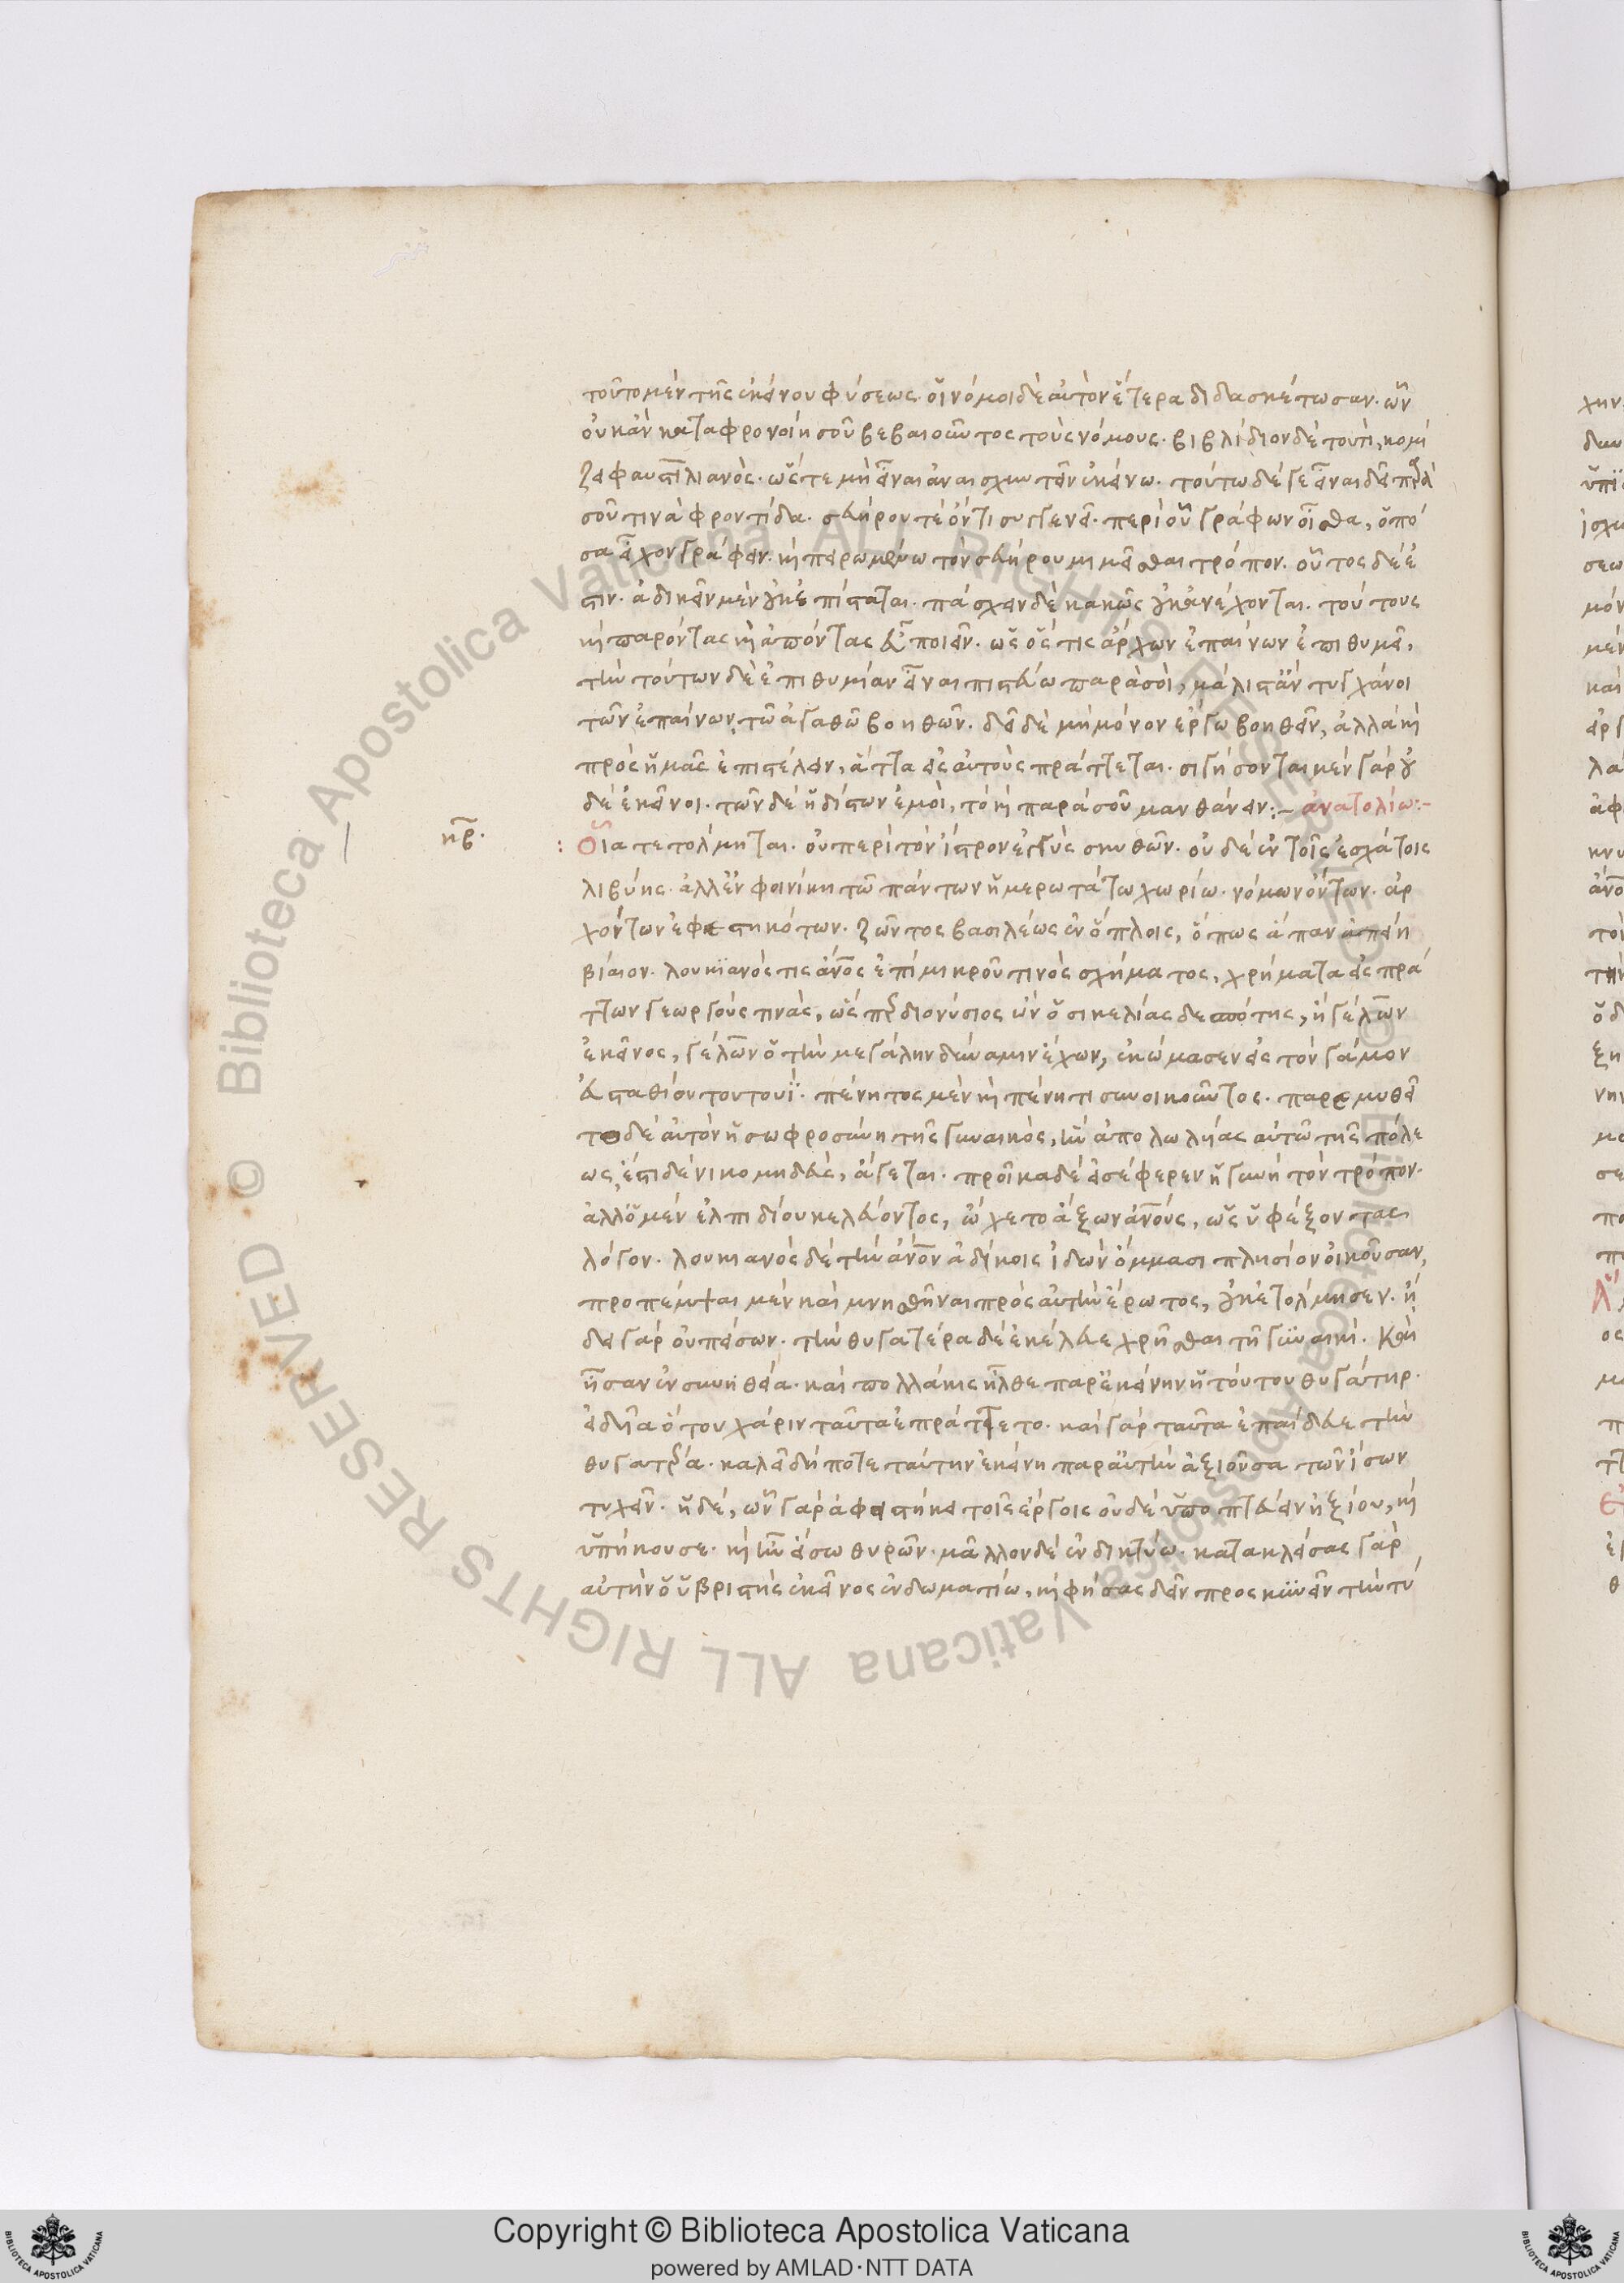 τοῦτο μὲν τῆς ἐκείνου φύσεως. οἱ νόμοι δὲ αὐτὸν ἕτερα διδασκέτωσαν. ὧν
οὐκ ἂν καταφρονοίη σοῦ βεβαιοῦντος τοὺς νόμους. βιβλίδιον δὲ τουτὶ, κομί
ζει φαυστιλιανός. ὥστε μὴ εἶναι ἀναισχυντεῖν ἐκείνω. τούτω δέ γε εἶναι δεῖ παρὰ
σοῦ τινὰ φροντίδα. σκήρου τὲ ὄντι συγγενεῖ. περὶ οὗ γράφων οἶσθα, ὁπό
σα εἶχον γράφειν. κὶ πειρωμένω τὸν σκήρου μιμεῖσθαι τρόπον. οὗτος δέ ἐ
στιν. ἀδικεῖν μὲν οὐκ ἐπίσταται. πάσχειν δὲ κακῶς οὐκ ἀνέχονται. τούτους
κὶ παρόντας κὶ ἀπόντας εὖ ποιεῖν. ὡς ὅστις ἄρχων ἐπαίνων ἐπιθυμεῖ,
τὴν τούτων δὲ ἐπιθυμίαν εἶναι πιστεύω παρὰ σοὶ, μάλιστ' ἂν τυγχάνοι
τῶν ἐπαίνων, τῶ ἀγαθῶ βοηθῶν. δεῖ δὲ μὴ μόνον ἔργω βοηθεῖν, ἀλλὰ κὶ
πρὸς ἡμᾶς ἐπιστέλειν, ἅττα εἰς αὐτοὺς πράττεται. σιγήσονται μὲν γὰρ οὐ
δὲ ἐκεῖνοι. τῶν δὲ ἡδίστων ἐμοὶ, τὸ κὶ παρὰ σοῦ μανθάνειν:– ἀνατολίω:–
κβ. : Οἷα τετολμηται. οὐ περὶ τὸν ἴστρον ἐγγὺς σκυθῶν. οὐδὲ ἐν τοῖς ἐσχάτοις
λιβύης. ἀλλ' ἐν φοινίκη τῶ πάντων ἡμερωτάτω χωρίω. νόμων ὄντων. ἀρ
χόντων ἐφεστηκότων. ζῶντος βασιλέως ἐν ὅπλοις, ὅπως ἅπαν ἀπείη
βίαιον. λουκϊανός τις ἄνος ἐπὶ μικροῦ τινὸς σχήματος, χρήματα εἰς πρά
ττων γεωργούς τινὰς, ὡς πὲρ διονύσιος ὢν ὁ σικελίας δεσπότης, ἢ γέλων
ἐκεῖνος, γέλων ὁ τὴν μεγάλην δύναμιν ἔχων, ἐκώμασεν εἰς τὸν γάμον
εὐσταθίου τουτουῒ. πένητος μὲν κὶ πένητι συνοικοῦντος. παρεμυθεῖ
το δὲ αὐτὸν ἡ σωφροσύνη τῆς γυναικὸς, ἣν ἀπολωλυίας αὐτῶ τῆς πόλε
ως, ἔστι δὲ νικομηδεὺς, ἄγεται. προῖκα δὲ εἰσέφερεν ἡ γυνὴ τὸν τρόπον.
ἀλλ' ὁ μὲν ἐλπιδίου κελεύοντος, ὤχετο ἄξων ἀνους, ὡς ὑφέξοντας
λόγον. λουκιανὸς δὲ τὴν ἄνον ἀδίκοις ἰδὼν ὄμμασι πλησίον οἰκοῦσαν,
προπέμψαι μὲν καὶ μνησθῆναι πρὸς αὐτὴν ἔρωτος, οὐκ ἐτόλμησεν. ἤ
δει γὰρ οὐ πείσων. τὴν θυγατέρα δὲ ἐκέλευε χρῆσθαι τῆ γυναικί. Καὶ
ἦσαν ἐν συνηθεία. καὶ πολλάκις ἦλθε παρ' ἐκείνην ἡ τούτου θυγάτηρ.
ἐδήλα ὅτου χάριν ταῦτα ἐπράττετο. καὶ γὰρ ταῦτα ἐπαίδευε τὴν
θυγατρα. καλεῖ δήποτε ταύτην ἐκείνη παρ' αὑτὴν ἀξιοῦσα τῶν ἴσων
τυχεῖν. ἡ δέ, ὧν γὰρ ἀφειστήκει τοῖς ἔργοις οὐδὲ ὑποπτεύειν ἠξίου, κὶ
ὑπήκουσε. κὶ ἦν εἴσω θυρῶν. μᾶλλον δὲ ἐν δικτύω. κατακλείσας γὰρ
αὐτὴν ὁ ὑβριστὴς ἐκεῖνος ἐν δωματίω, κὶ φήσας δεῖν προσκυνεῖν τὴν τύ
Copyright © Biblioteca Apostolica Vaticana
powered by AMLAD · NTT DATA